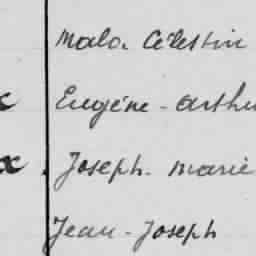 Malo. Célestin
x Eugéne - Arthu
x Joseph - Marie
Jean - Joseph